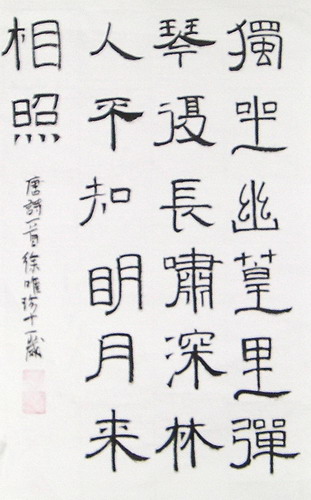 獨坐幽篁里彈
琴復長嘯深林
人不知明月来
相照
唐詩一首徐唯十一歲